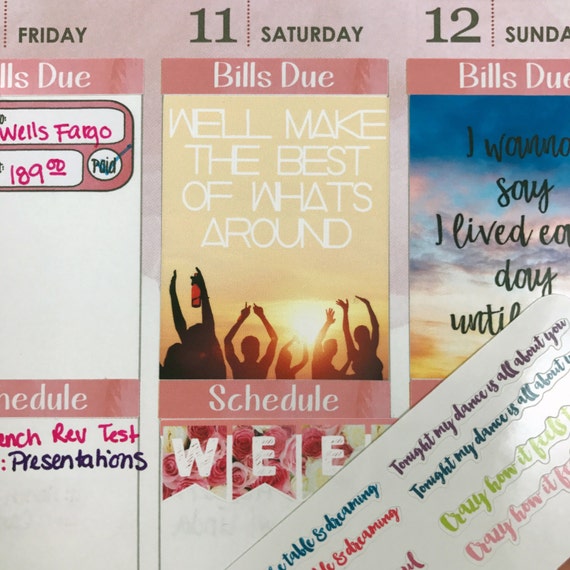 FRIDAY
11 SATURDAY
12 SUNDA
lls Due
Bills Due
Bills Due
Wells Fargo
189.00
Paid
WE'LL MAKE
THE BEST
OF WHAT'S
AROUND
I wanna
say
I lived ea
day
until
hedule
Schedule
ench Rev Test
: Presentations
WEE
Tonight my dance is all about you
Tonight my dance is all about you
Crazy how it feels
Crazy how it fe
table & dreaming
table & dreaming